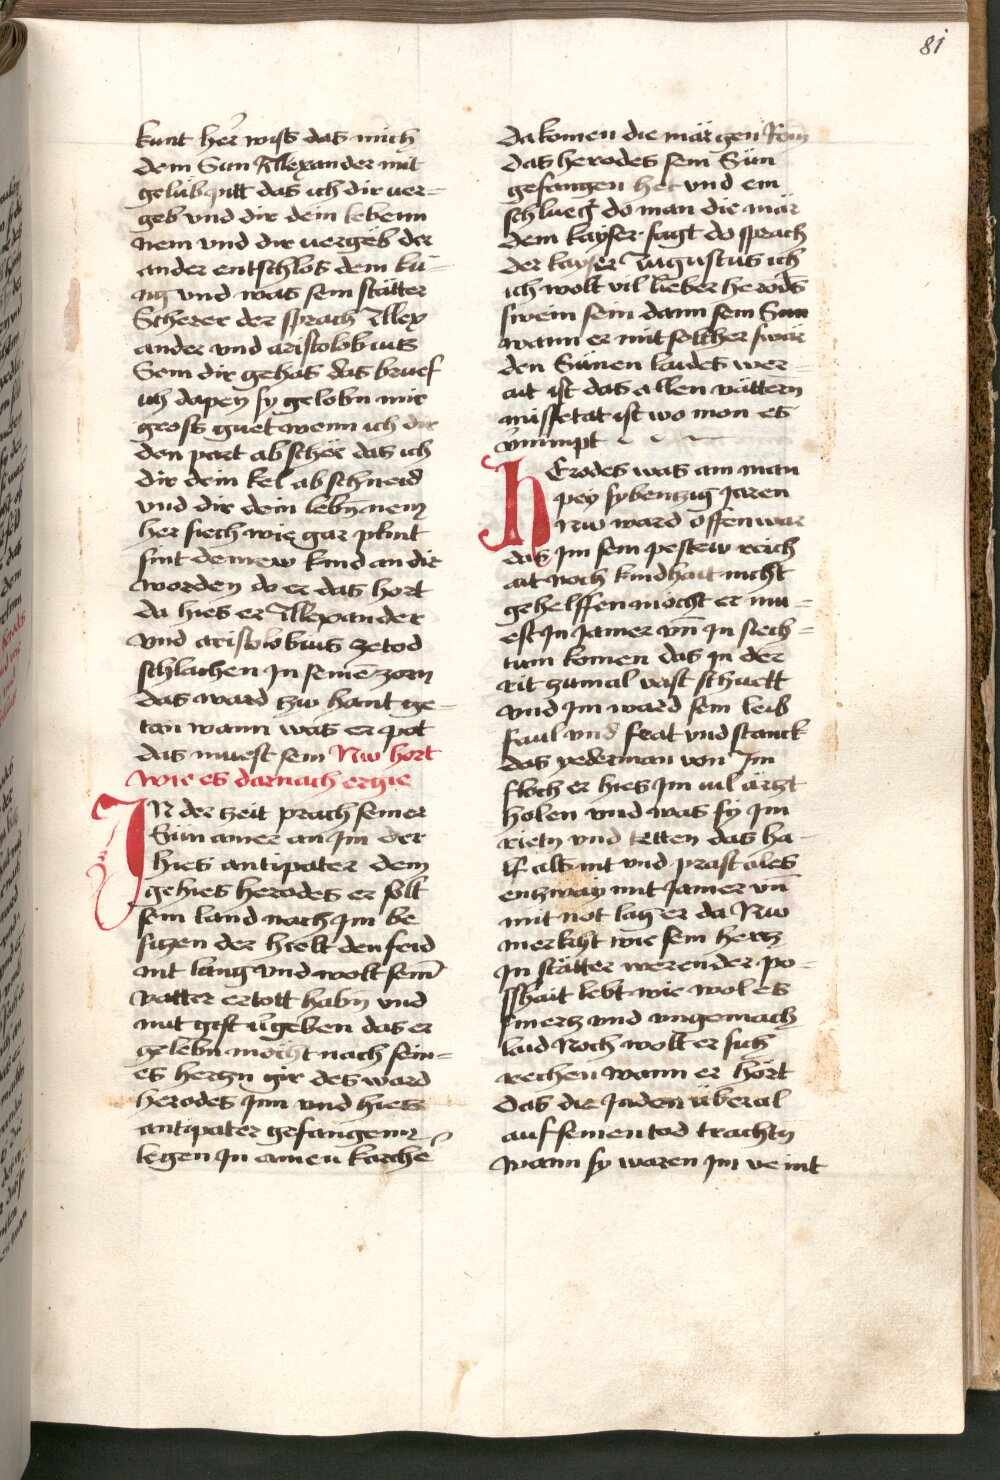 81
kunt her wiss das mich
dem Sun Allexander mit
gelüb pitt das ich dir ver=
geb vnd dir dein lebenn
nem vnd dir vergeb der
ander entschlos dem kü=
nig vnd was sein stätter
Scherer der sprach Allex
ander vnd aristolobius
Sein dir gehas das bruef
ich dapey sy gelobn mir
gross guet wenn ich dir
den part ab scher das ich
dir dein kel ab schneid
vnd dir dein lebn nem
her siech wie gar plint
sint deinew kind an dir
worden do er das hort
da hies er Allexander
vnd aristolobius ze tod
schlachen Jn seinē zorn
das ward zw hant ge=
tan wann was er pot
das muest sein Nw hort
wie es darnach ergie
JN der zeit prach seiner
Sün ainer an Jm der
hies antipater dem
gehies herodes er solt
sein land nach Jm be
sitzen der hielt den feid
nit lang vnd wolt sein
vatter ertott habn vnd
mit gift vergeben das er
gelebn mocht nach sein=
es hertzn gir des ward
herodes Jnn vnd hiess
antipater gefangenn
legen Jn ainen karche
da komen die mär gen Rom
das herodes sein Sün
gefangen het vnd ein
schlueg do man die mär
dem kayser sagt do sprach
der kayser Augustus ich
ich wolt vil lieber herods
swein sein dann sein Sun
wann er mit solcher swär
den Sünen laides wer=
ait ist das allen vättern
missetat ist wo mon es
vernimpt
HErodes was ain man
pey sybentzig Jaren
Nw ward offenwar
das Jm sein pestew reich
ait noch kindhait nicht
gehelffen mocht er mu=
est Jn Jamer vn̄ Jn siech=
tum komen das Jn der
rit zumal vast schuett
vnd Jm ward sein leib
faul vnd frat vnd stanck
das yederman von Jm
floch er hies Jm vil ärtzt
holen vnd was sy Jm
rietn vnd tetten das ha=
lf als nit vnd prast ales
entzway mit Jamer vn̄
mit not lag er da Nw
merkcht wie sein hertz
Jn stätter werender po=
sshait lebt wie wol es
smertz vnd vngemach
laid Noch wolt er sich
rechen wann er hört
das die Juden überal
auf seinen tod trachtn
wann sy waren Jm veint